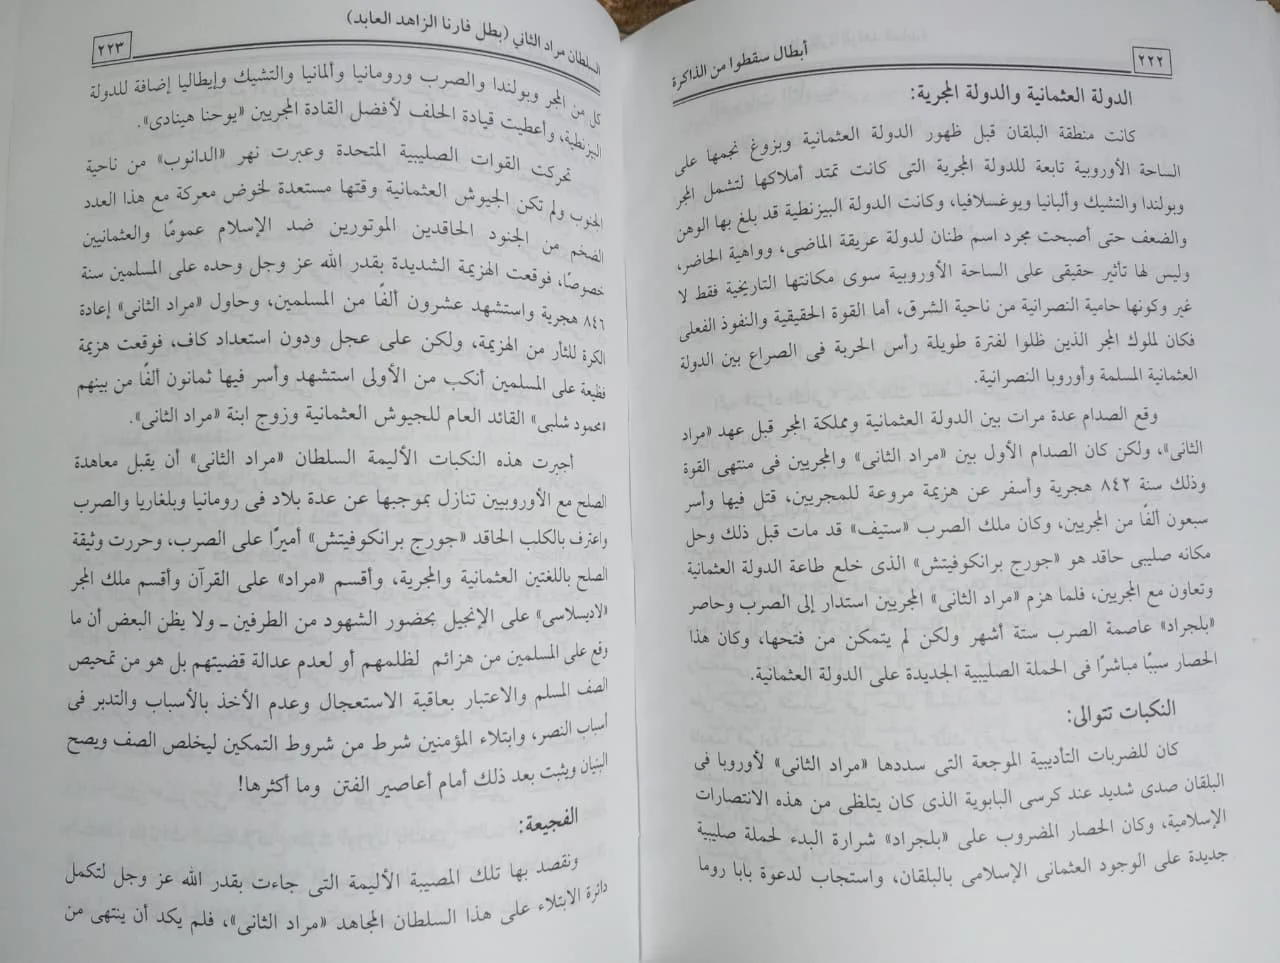 أبطال سقطوا من الذاكرة
٢٢٢
الدولة العثمانية والدولة المجرية:
كانت منطقة البلقان قبل ظهور الدولة العثمانية وبزوغ نجمها على
الساحة الأوروبية تابعة للدولة المجرية التى كانت تمتد أملاكها لتشمل المجر
وبولندا والتشيك وألبانيا ويوغسلافيا، وكانت الدولة البيزنطية قد بلغ بها الوهن
والضعف حتى أصبحت مجرد اسم طنان لدولة عريقة الماضى، وواهية الحاضر،
وليس لها تأثير حقيقى على الساحة الأوروبية سوى مكانتها التاريخية فقط لا
غير وكونها حامية النصرانية من ناحية الشرق، أما القوة الحقيقية والنفوذ الفعلى
فكان لملوك المجر الذين ظلوا لفترة طويلة رأس الحربة فى الصراع بين الدولة
العثمانية المسلمة وأوروبا النصرانية.
وقع الصدام عدة مرات بين الدولة العثمانية ومملكة المجر قبل عهد «مراد
الثانى»، ولكن كان الصدام الأول بين «مراد الثانى» والمجريين فى منتهى القوة
وذلك سنة ٨٤٢ هجرية وأسفر عن هزيمة مروعة للمجريين، قتل فيها وأسر
سبعون ألفًا من المجريين، وكان ملك الصرب «ستيف» قد مات قبل ذلك وحل
مكانه صليبى حاقد هو «جورج برانكوفيتش» الذى خلع طاعة الدولة العثمانية
وتعاون مع المجريين، فلما هزم «مراد الثانى» المجريين استدار إلى الصرب وحاصر
«بلجراد» عاصمة الصرب ستة أشهر ولكن لم يتمكن من فتحها، وكان هذا
الحصار سببًا مباشرًا فى الحملة الصليبية الجديدة على الدولة العثمانية.
النكبات تتوالى:
كان للضربات التأديبية الموجعة التى سددها «مراد الثانى» لأوروبا فى
البلقان صدى شديد عند كرسى البابوية الذى كان يتلظى من هذه الانتصارات
الإسلامية، وكان الحصار المضروب على «بلجراد» شرارة البدء لحملة صليبية
جديدة على الوجود العثمانى الإسلامى بالبلقان، واستجاب لدعوة بابا روما
السلطان مراد الثاني (بطل فارنا الزاهد العابد)
٢٢٣
كل من المجر وبولندا والصرب ورومانيا وألمانيا والتشيك وإيطاليا إضافة للدولة
البيزنطية، وأعطيت قيادة الحلف لأفضل القادة المجريين «يوحنا هينادى».
تحركت القوات الصليبية المتحدة وعبرت نهر «الدانوب» من ناحية
الجنوب ولم تكن الجيوش العثمانية وقتها مستعدة لخوض معركة مع هذا العدد
الضخم من الجنود الحاقدين الموتورين ضد الإسلام عمومًا والعثمانيين
خصوصًا، فوقعت الهزيمة الشديدة بقدر الله عز وجل وحده على المسلمين سنة
٨٤٦ هجرية واستشهد عشرون ألفًا من المسلمين، وحاول «مراد الثانى» إعادة
الكرة للثأر من الهزيمة، ولكن على عجل ودون استعداد كاف، فوقعت هزيمة
فظيعة على المسلمين أنكب من الأولى استشهد وأسر فيها ثمانون ألفًا من بينهم
«محمود شلبى» القائد العام للجيوش العثمانية وزوج ابنة «مراد الثانى».
أجبرت هذه النكبات الأليمة السلطان «مراد الثانى» أن يقبل معاهدة
الصلح مع الأوروبيين تنازل بموجبها عن عدة بلاد فى رومانيا وبلغاريا والصرب
واعترف بالكلب الحاقد «جورج برانكوفيتش» أميرًا على الصرب، وحررت وثيقة
الصلح باللغتين العثمانية والمجرية، وأقسم «مراد» على القرآن وأقسم ملك المجر
«لاديسلاسى» على الإنجيل بحضور الشهود من الطرفين ـ ولا يظن البعض أن ما
وقع على المسلمين من هزائم لظلمهم أو لعدم عدالة قضيتهم بل هو من تمحيص
الصف المسلم والاعتبار بعاقبة الاستعجال وعدم الأخذ بالأسباب والتدبر فى
أسباب النصر، وابتلاء المؤمنين شرط من شروط التمكين ليخلص الصف ويصح
البنيان ويثبت بعد ذلك أمام أعاصير الفتن وما أكثرها!
الفجيعة:
ونقصد بها تلك المصيبة الأليمة التى جاءت بقدر الله عز وجل لتكمل
دائرة الابتلاء على هذا السلطان المجاهد «مراد الثانى»، فلم يكد أن ينتهى من